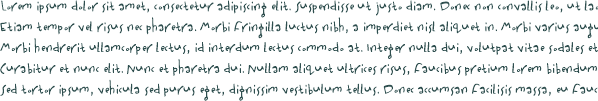 Lorem ipsum dolor sit amet, consectetur adipiscing elit. Suspendisse ut justo diam. Donec non convallis leo, ut lac
Etiam tempor vel risus nec pharetra. Morbi fringilla luctus nibh, a imperdiet nisl aliquet in. Morbi varius augu
Morbi hendrerit ullamcorper lectus, id interdum lectus commodo at. Integer nulla dui, volutpat vitae sodales et
Curabitur et nunc elit. Nunc et pharetra dui. Nullam aliquet ultrices risus, faucibus pretium lorem bibendum
sed tortor ipsum, vehicula sed purus eget, dignissim vestibulum tellus. Donec accumsan facilisis massa, eu fauc